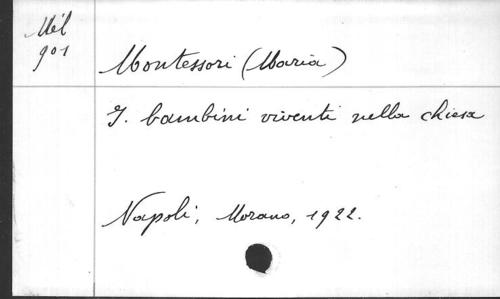 Mél
901
Montessori (Maria)
I. bambini viventi nella chiesa
Napoli, Morano, 1922.